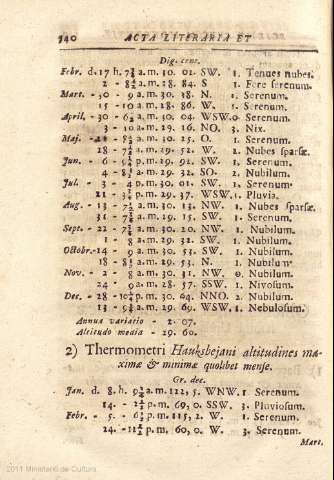 340 ACTA LITERARIA ET
Dig. cent.
Febr. d. 17 h. 7½ a. m. 30. 02. SW. 1. Tenues nubes.
2 - 8½ a. m. 28. 84. S 1. Fere serenum.
Mart. - 30 - 9 a. m. 30. 18. N. 1. Serenum.
15 - 10 a. m. 28. 86. W. 1. Serenum.
April. - 30 - 6½ a. m. 30. 04. WSW. 0. Serenum.
3 - 10 a. m. 29. 16. NO. 3. Nix.
Maj. - 8½ a. m. 30. 25. O. 1. Serenum.
28 - 7½ a. m. 29. 52. W. 2. Nubes sparsæ.
Jun. - 6 - p. m. 29. 92. SW. 1. Serenum.
4 - 8½ a. m. 29. 32. SO. 2. Nubilum.
Jul. - 3 - 4 p. m. 30. 01. SW. 1. Serenum.
21 - p. m. 29. 37. WSW. 1. Pluvia.
Aug. - 13 - 7½ a. m. 30. 13. NW. 1. Nubes sparsæ.
31 - a. m. 29. 15. SW. 1. Serenum.
Sept. - 22 - a. m. 30. 20. NW. 1. Nubilum.
1 - 8 a. m. 29. 31. SW. 1. Nubilum.
Octobr. - 14 - 9 a. m. 30. 53. SW. 1. Nubilum.
18 - 8½ a. m. 29. 53. N. 1. Nubilum.
Nov. - 2 - 8 a. m. 30. 31. NW. 0. Nubilum.
24 - 9 a. m. 28. 57. SSW. 1. Nivosum.
Dec. - 28 - 10½ p. m. 30. 64. NNO. 2. Nubilum.
13 - 9½ a. m. 29. 69. WSW. 1. Nebulosum.
Annua variatio - 2. 07.
Altitudo media - 29. 60.
2) Thermometri Hauksbejani altitudines ma-
ximæ & minimæ quolibet mense.
Gr. dec.
Jan. d. 8. h. 9½ a. m. 112, 5. WNW. 1. Serenum.
14. - p. m. 69, 0. SSW. 3. Pluviosum.
Febr. - 5. - 6½ p. m. 115, 2. W. 1. Serenum.
24. - p. m. 60, 0. W. 3. Serenum.
Mart.
2011 Ministerio de Cultura